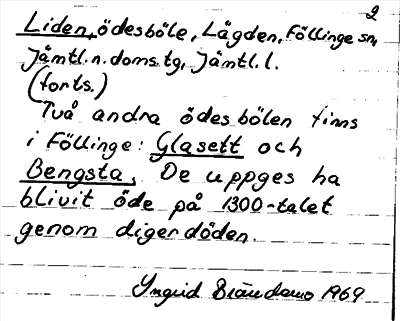 2
Liden, ödesböle, Lägden, Föllinge sn,
Jämtl. n. doms. tg, Jämtl. l.
(forts.)
Två andra ödesbölen finns
i Föllinge: Glasett och
Bengsta. De uppges ha
blivit öde på 1300-talet
genom digerdöden.
Yngrid Brändemo 1969